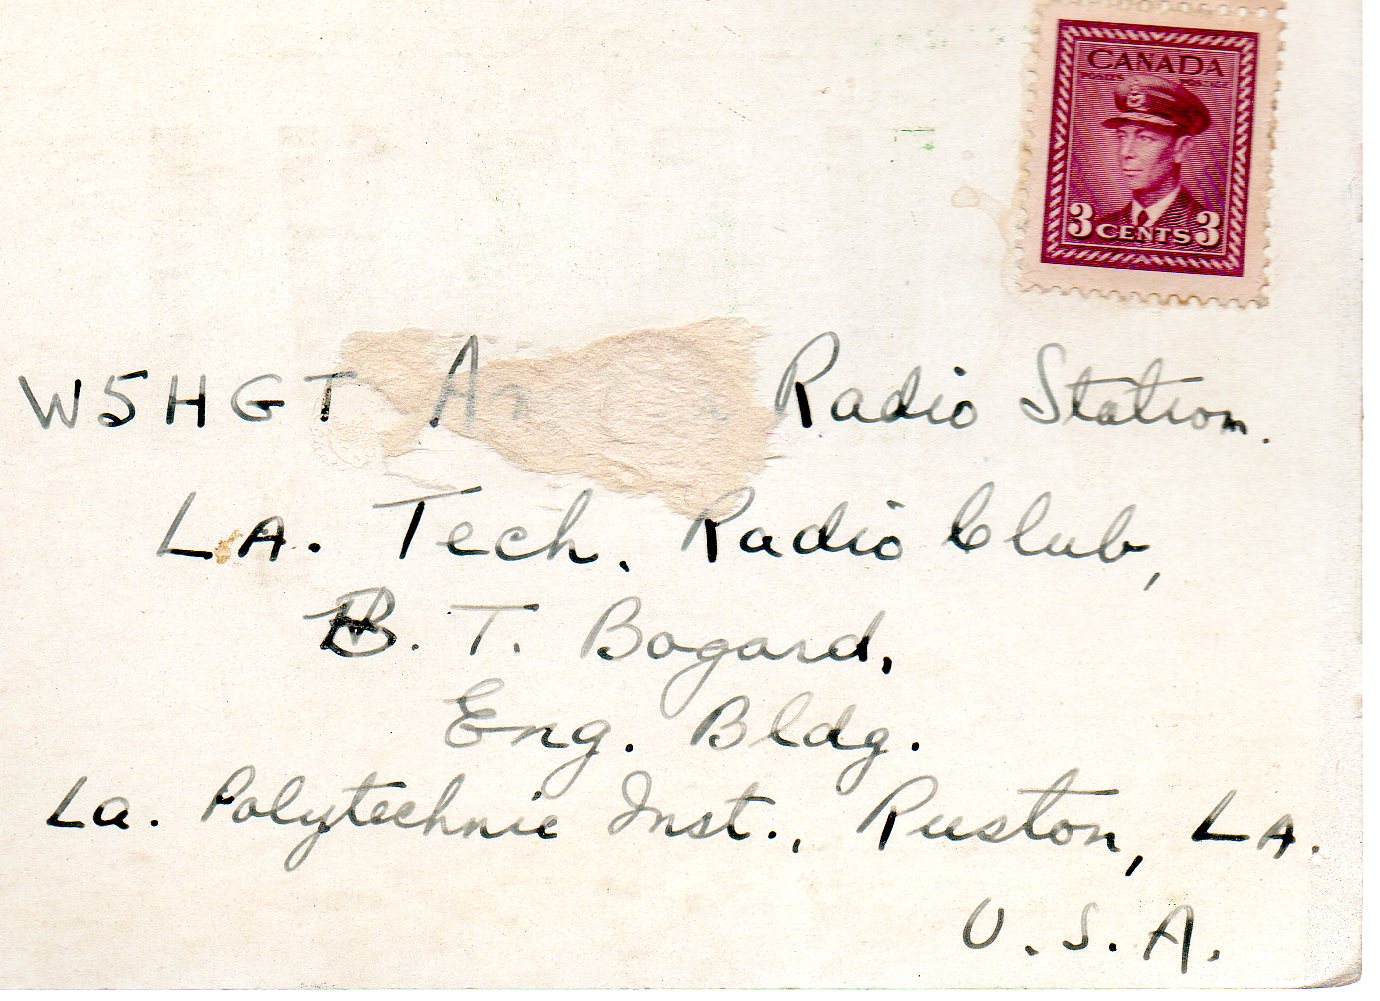 CANADA
3 CENTS 3
W5HGT Radio Station.
LA. Tech. Radio Club,
B. T. Bogard,
Eng. Bldg.
La. Polytechnic Inst., Ruston, LA.
U.S.A.